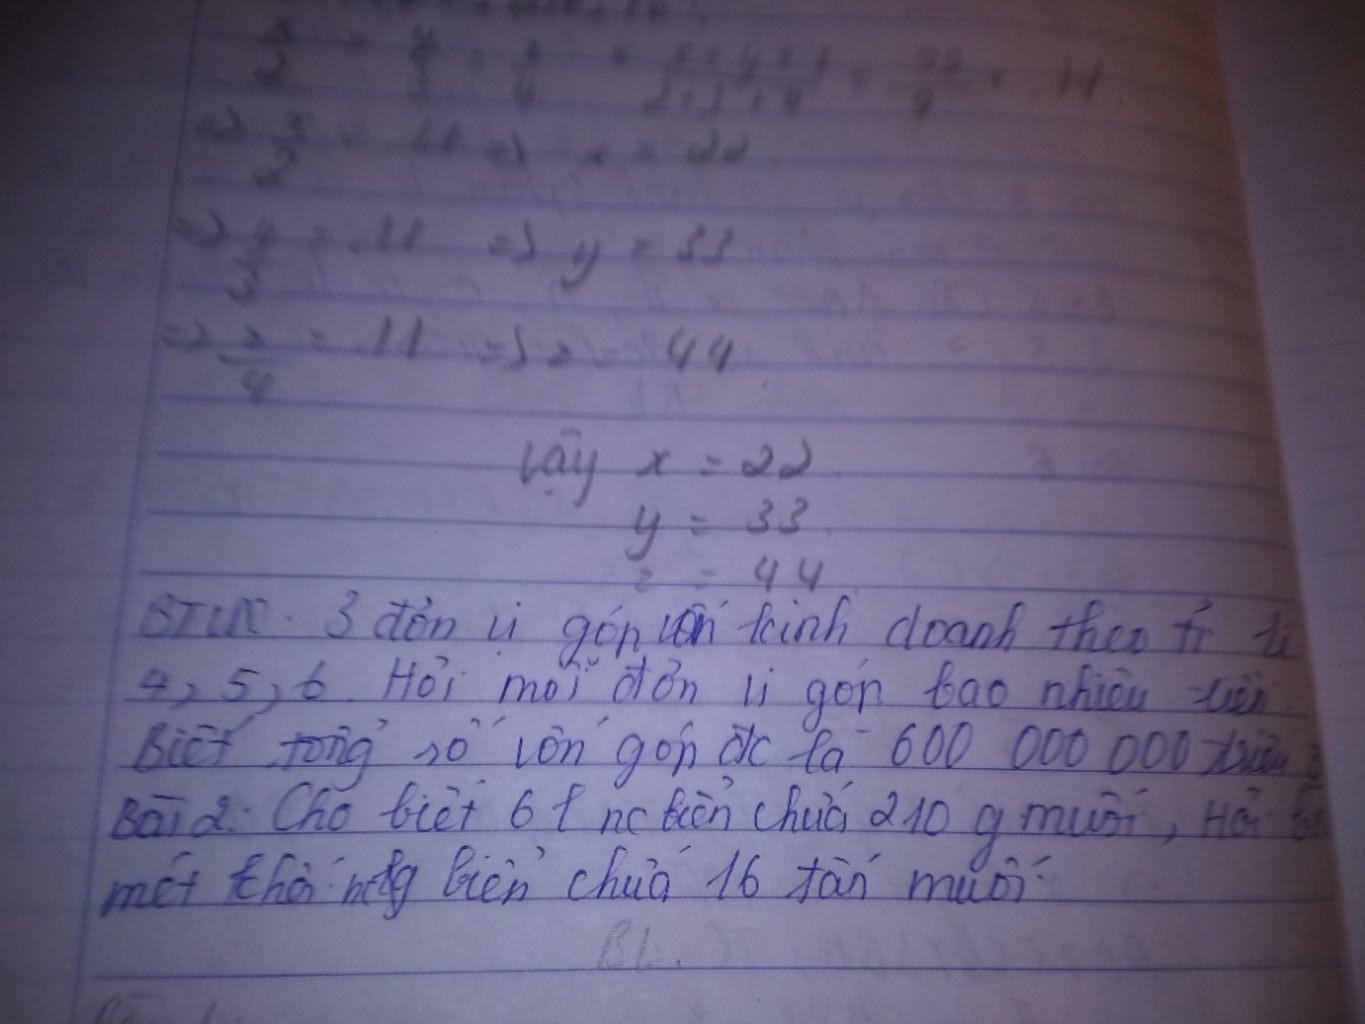 x/2 = y/3 = z/4 = x+y+z/2+3+4 = 99/9 = 11
=> x/2 = 11 => x = 22
=> y/3 = 11 => y = 33
=> z/4 = 11 => z = 44
Vậy x = 22
y = 33
z = 44
BTVN. 3 đơn vị góp vốn kinh doanh theo tỉ lệ
4, 5, 6. Hỏi mỗi đơn vị góp bao nhiêu tiền
Biết tổng số vốn góp đc là 600 000 000 triệu
Bài 2: Cho biết 6 l nc biển chứa 210 g muối, Hỏi
mét khối nước biển chứa 16 tấn muối
BL.